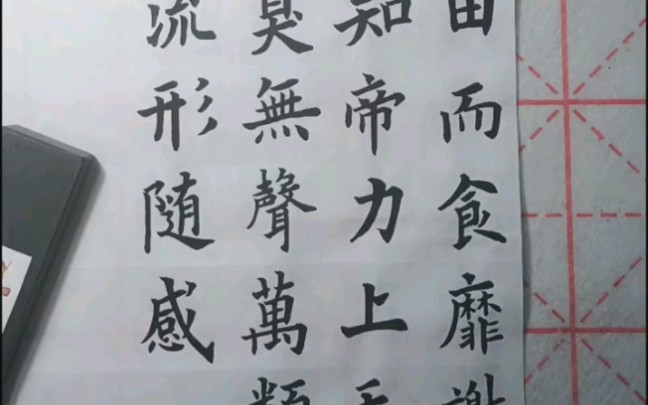 田而食靡謝
知帝力上天
臭無聲萬類
流形随感